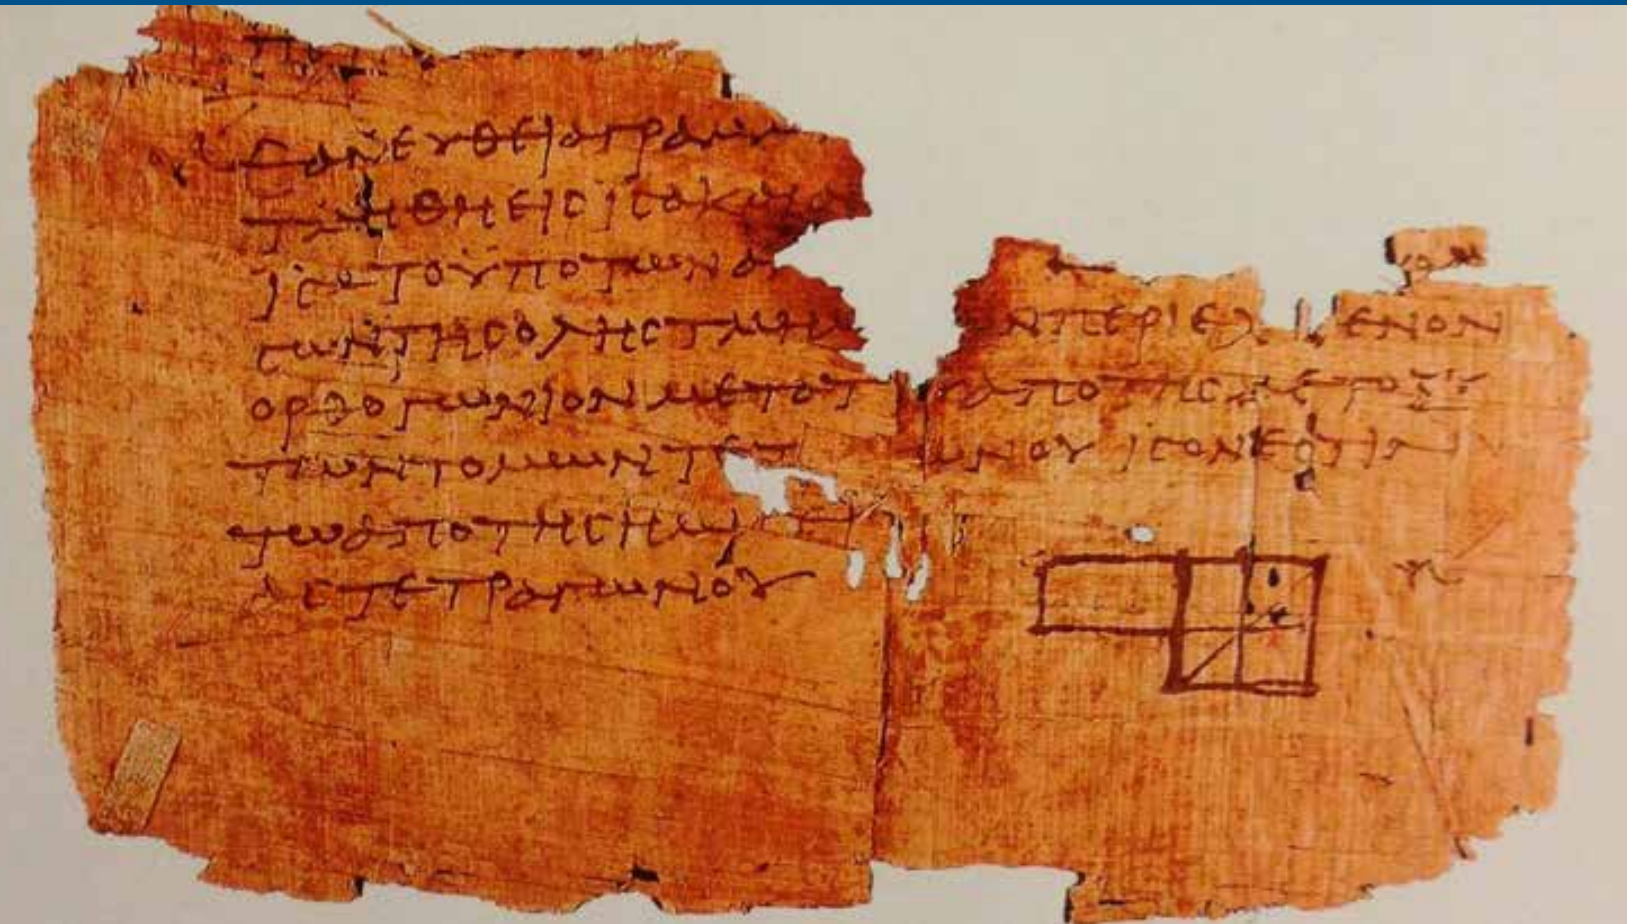 ΕΑΝ ΕΥΘΕΙΑ ΓΡΑΜΜ
ΤΜΗΘΗ ΕΙΣ ΙΣΑ ΚΑΙ Α
ΙΣΑ ΤΟ ΥΠΟ ΤΩΝ Α
ΣΩΝ ΤΗΣ ΟΛΗΣ ΤΜΗΜ Ν ΠΕΡΙΕΧ ΕΝΟΝ
ΟΡΘΟΓΩΝΙΟΝ ΜΕΤΑ Τ ΑΠΟ ΤΗΣ ΜΕΤΟΞΥ
ΤΩΝ ΤΟΜΩΝ ΤΕΤ ΩΝΟΥ ΙΣΟΝ ΕΣΤΙΝ
ΤΩ ΑΠΟ ΤΗΣ ΗΜΙ
ΑΣ ΤΕΤΡΑΓΩΝΟΥ